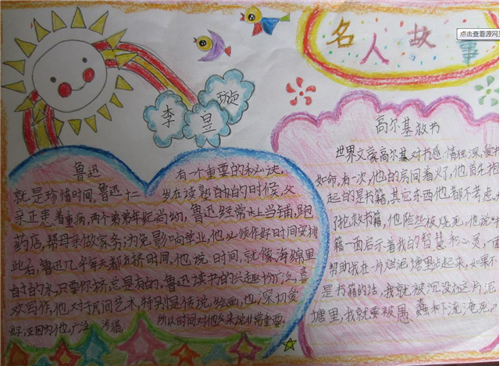 点击查看源网页
名人故
李昱璇
鲁迅
有一个重要的秘诀,
就是珍惜时间,鲁迅十二
岁在读私塾的时候,父
亲正患着重病,两个弟弟年纪尚幼,鲁迅经常上当铺,跑
药店,帮母亲做家务;为免影响学业,他必须作好时间安排
此后,鲁迅几乎每天都在挤时间,他说:时间,就像海绵里
的水,只要你挤,总是有的,鲁迅读书的兴趣
欢写作,他对于民间艺术,特别是传说、绘画,也深切爱
好,正因为他广泛涉猎
所以时间对他来说非常重要。
高尔基救书
世界文豪高尔基对书感情独深,爱书
如命,有一次,他的房间着火了,他首先抱
起的是书籍,其它东西他都不考虑,为
了抢救书籍,他险些被烧死,他说
籍一面启示着我的智慧和心灵,面
帮助我在一片烂泥塘里站起来,如果不
是书籍的话,我就被沉没在这片泥
塘里,我就要被愚蠢和下流淹死。